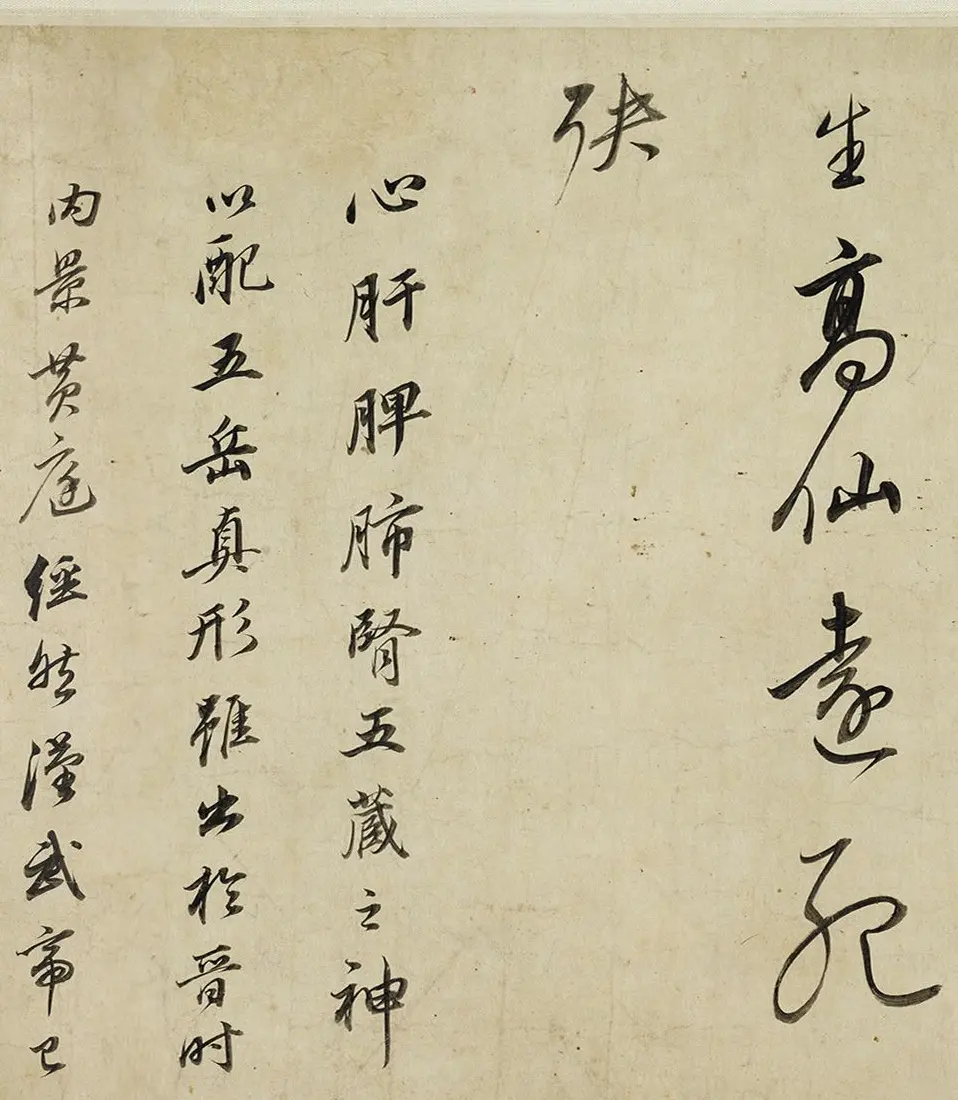 生高仙遠死
殃
心肝脾肺腎五藏之神
以配五岳真形雖出於晉时
内景黄庭經然漢武帝已